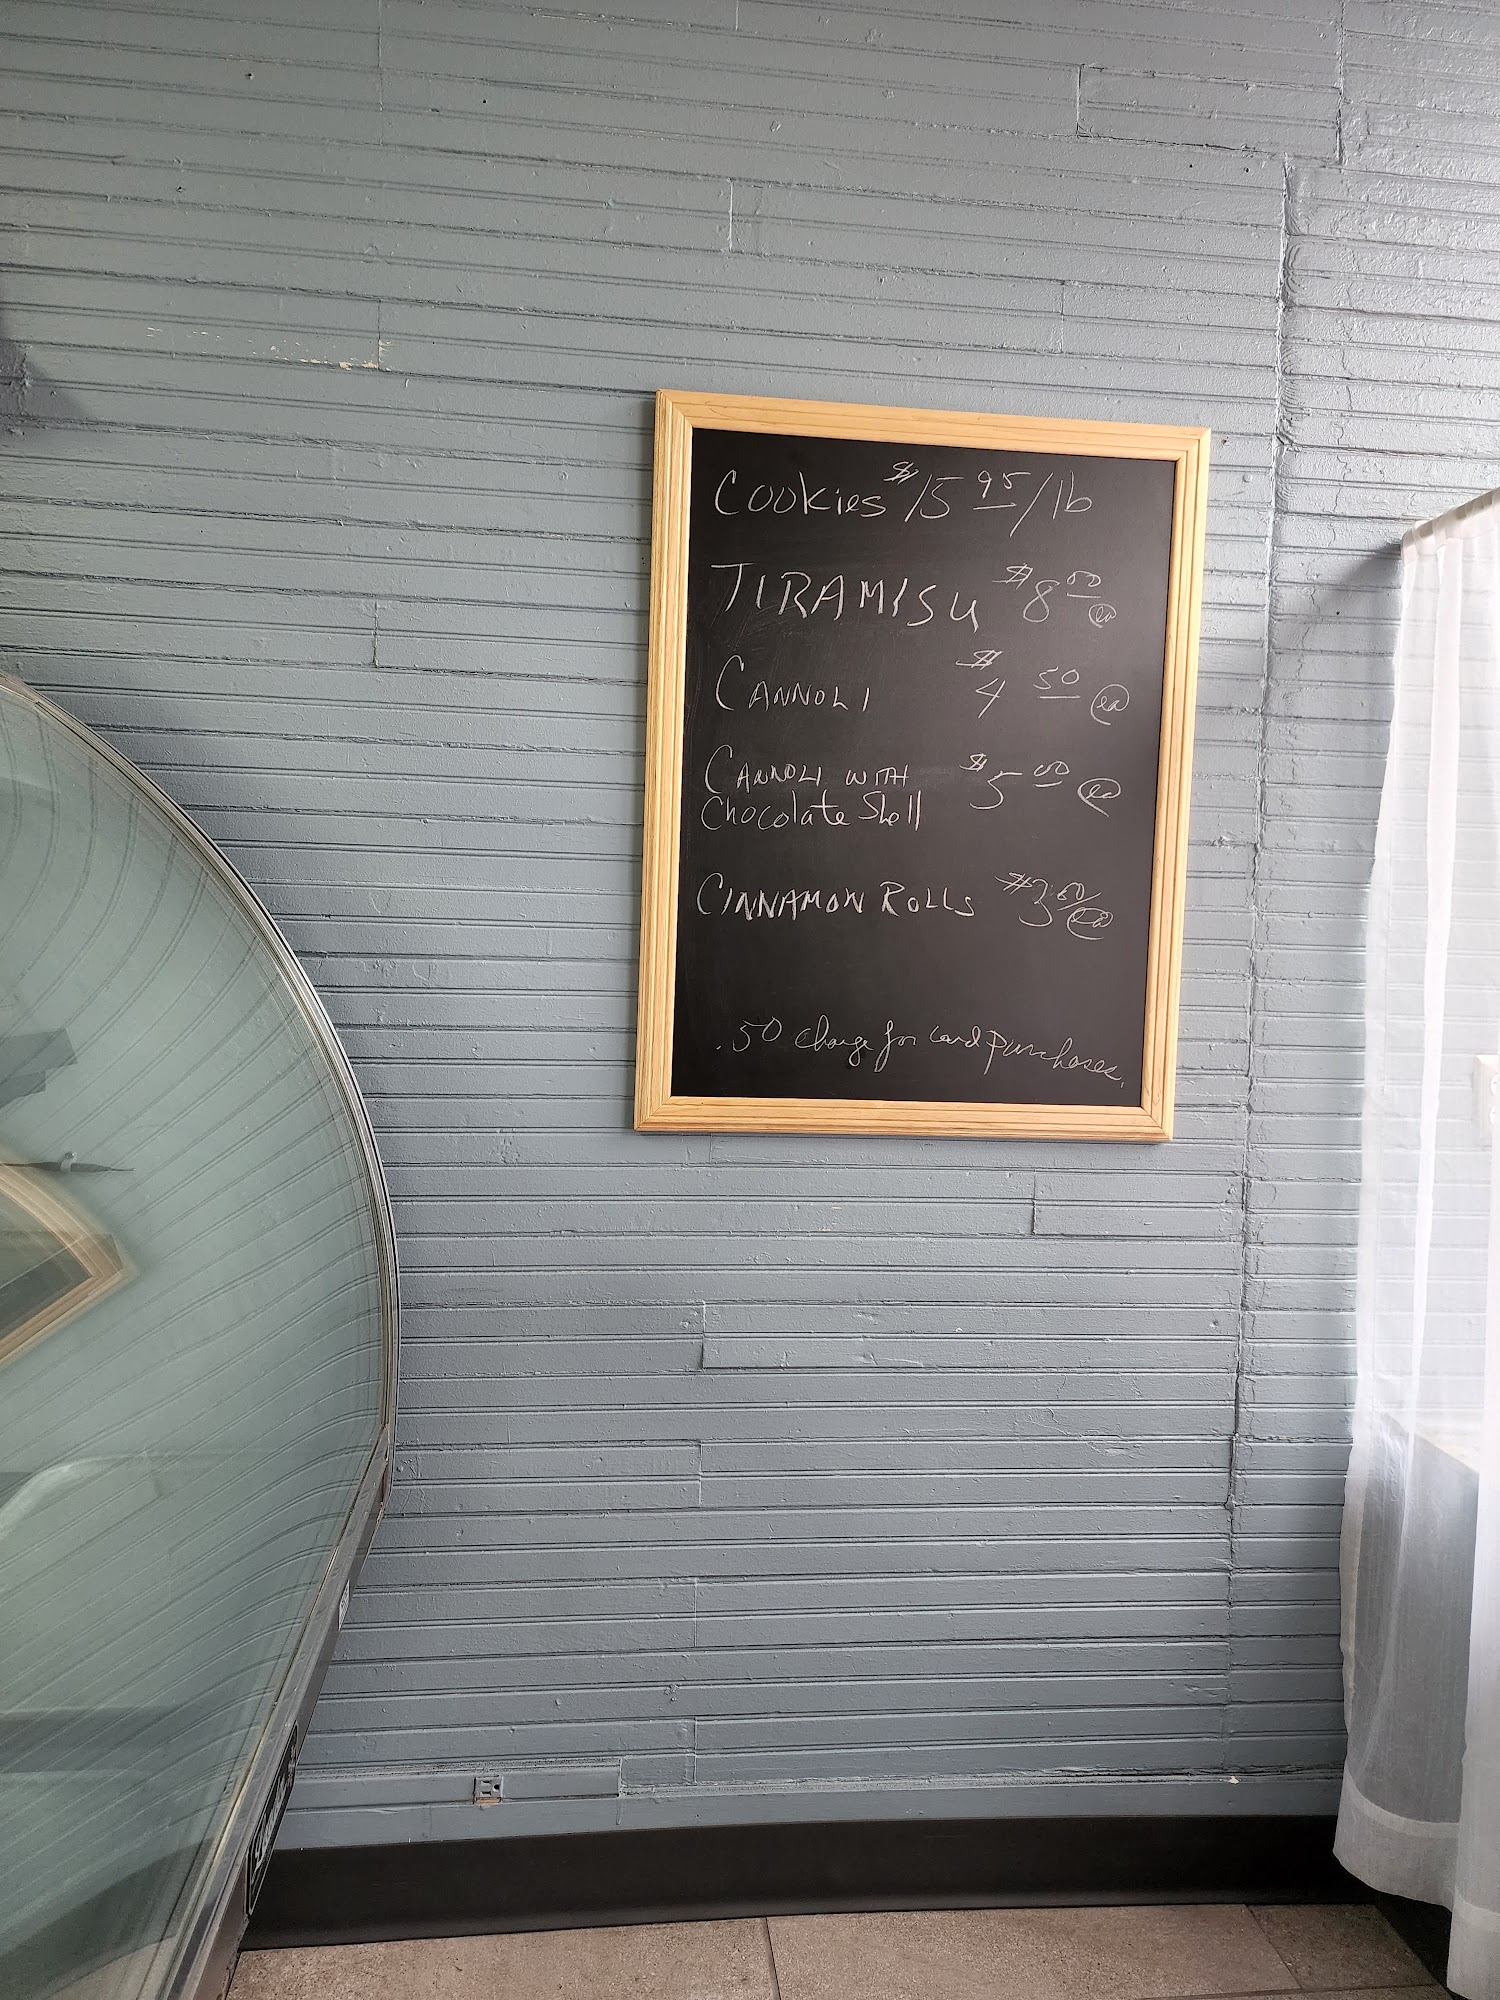 Cookies $15 95/lb
TIRAMISU $8 00 ea
CANNOLI $4 50 ea
CANNOLI WITH $5 00 ea
Chocolate Shell
CINNAMON ROLLS $3 50/ea
.50 charge for card purchases.